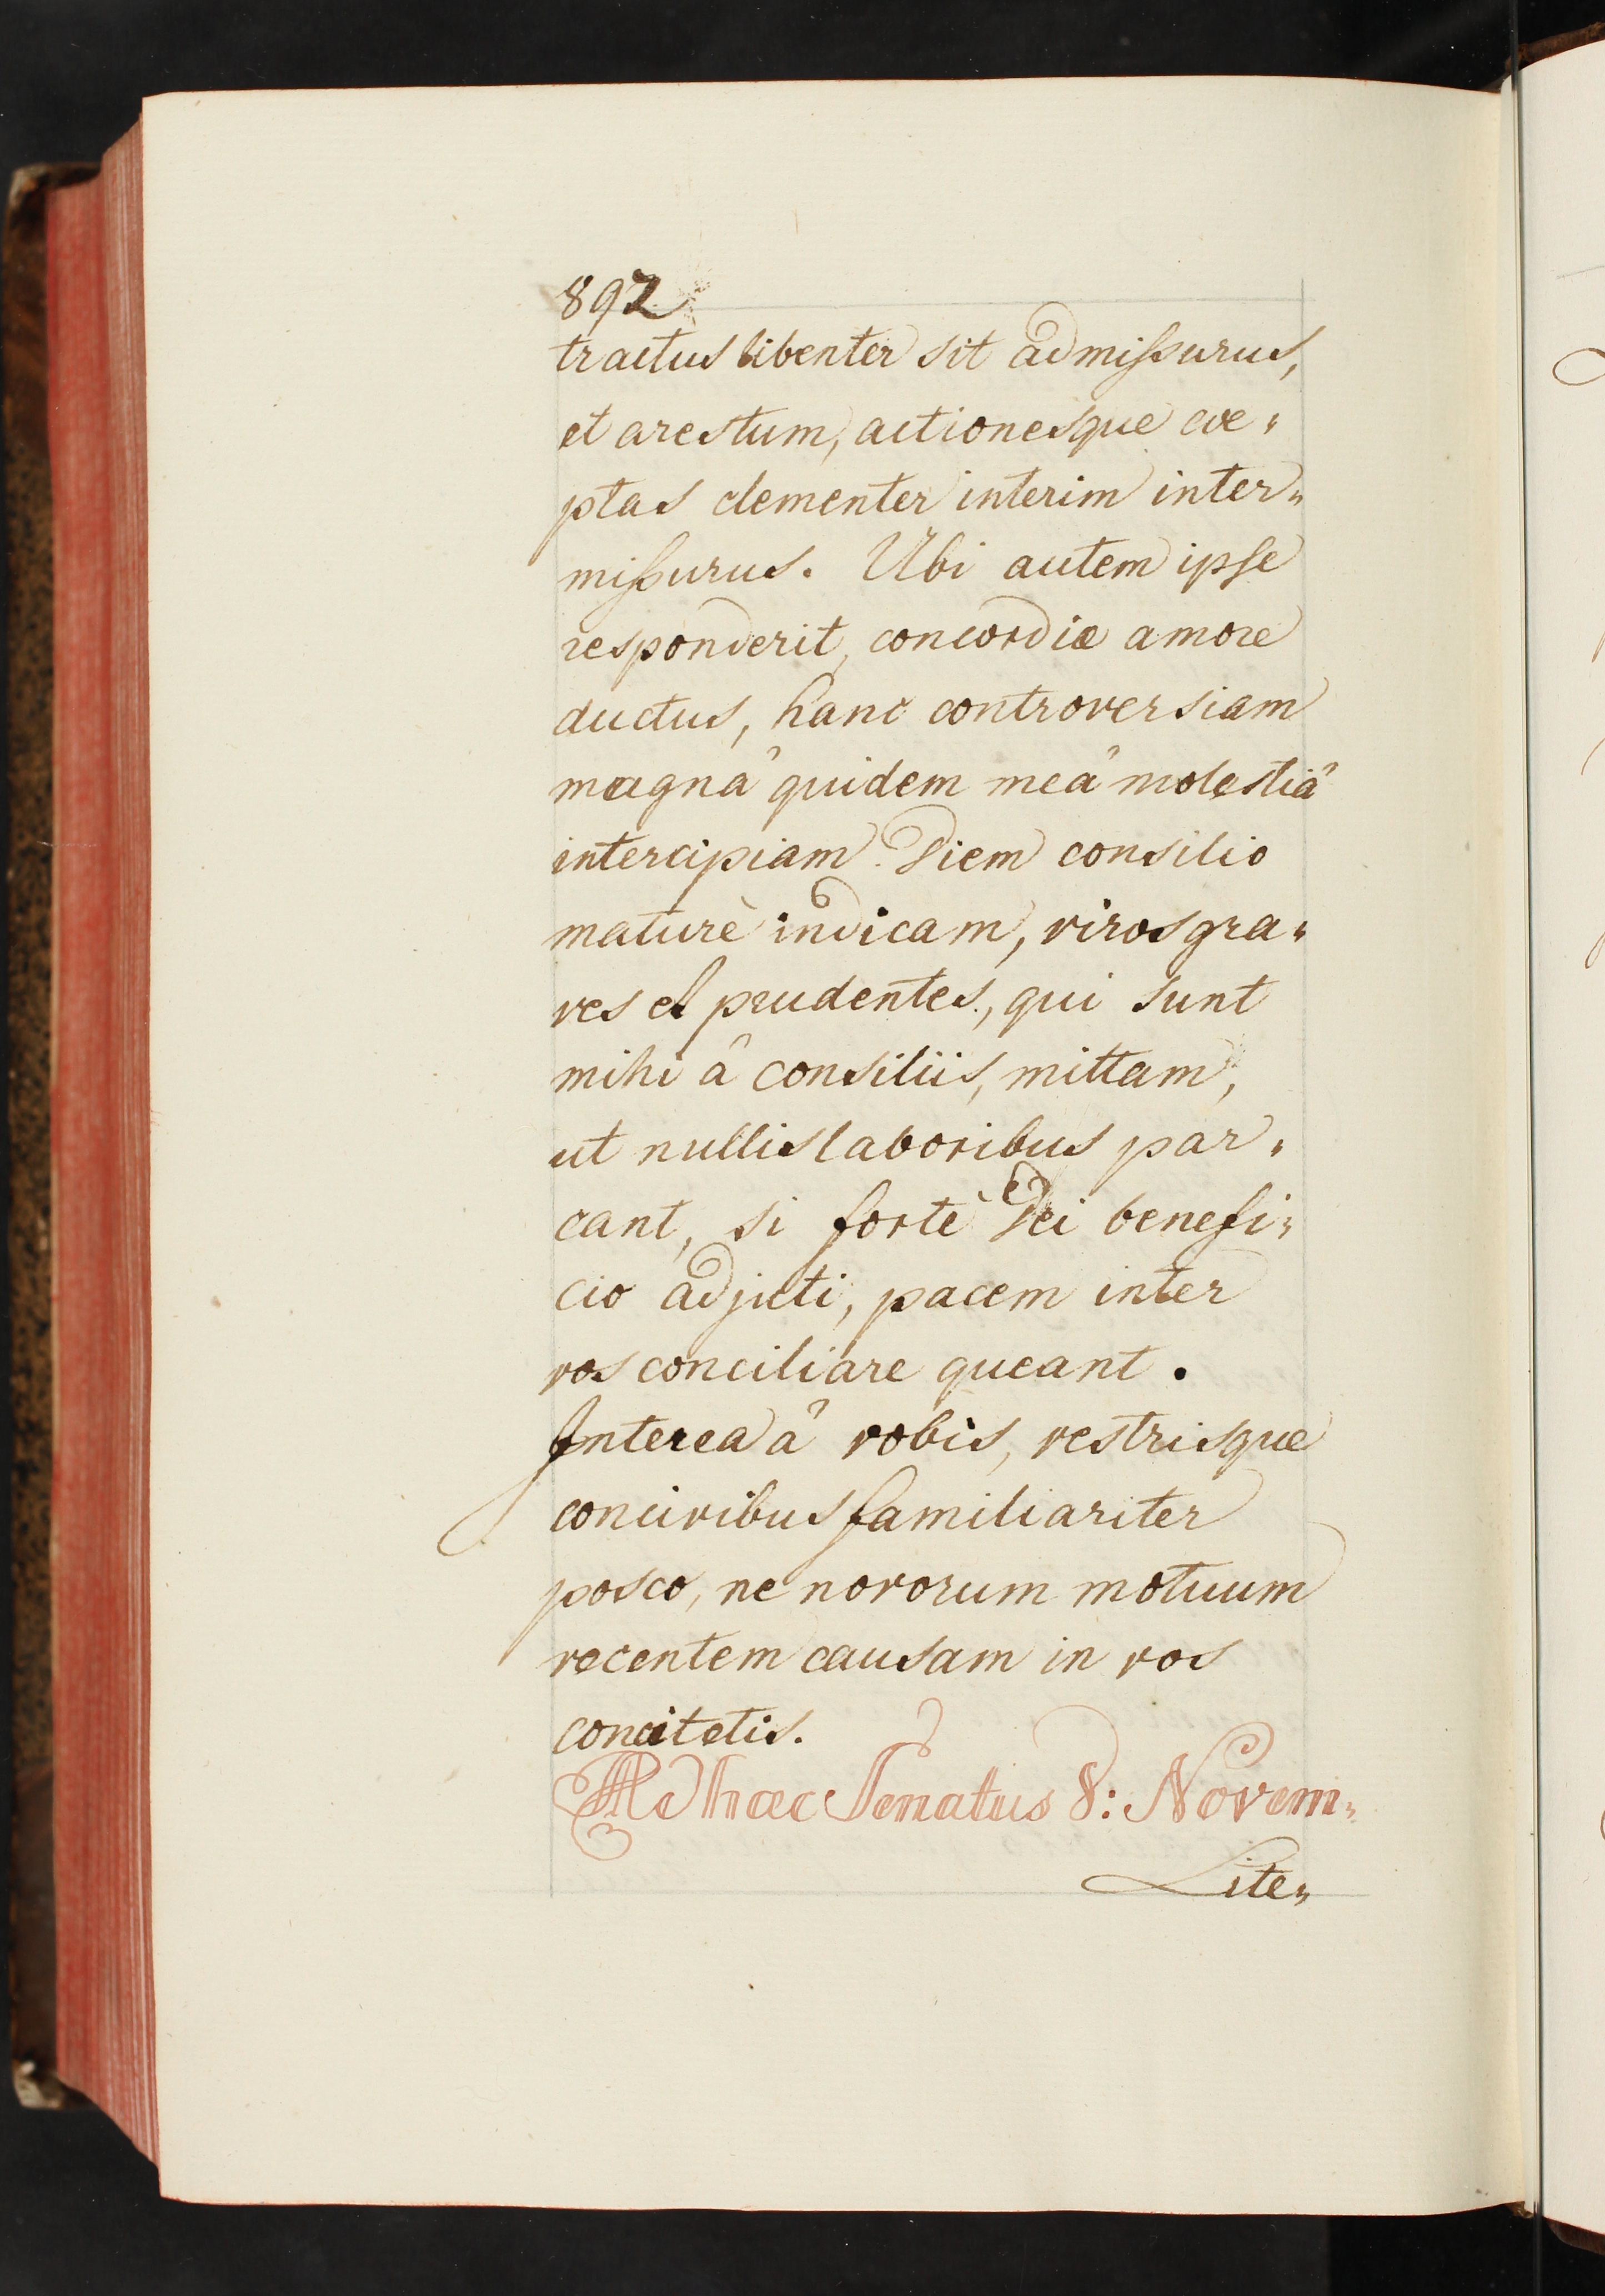 892
tractus libenter sit admißurus,
et arestum, actionesque cœ„
ptas clementer interim inter„
mißurus. Ubi autem ipse
responderit, concordiæ amore
ductus, hanc controversiam
magnâ quidem meâ molestiâ
intercipiam. Diem consilio
maturè indicam, viros gra„
ves et prudentes, qui sunt
mihi â consiliis, mittam,
ut nullis laboribus par„
cant, si fortè Dei benefi„
cio adjuti, pacem inter
vos conciliare queant.
Interea â vobis, vestrisque
concivibus familiariter
posco, ne novorum motuum
recentem causam in vos
concitetis.
Ad hæc Senatus 8: Novem„
Lite„